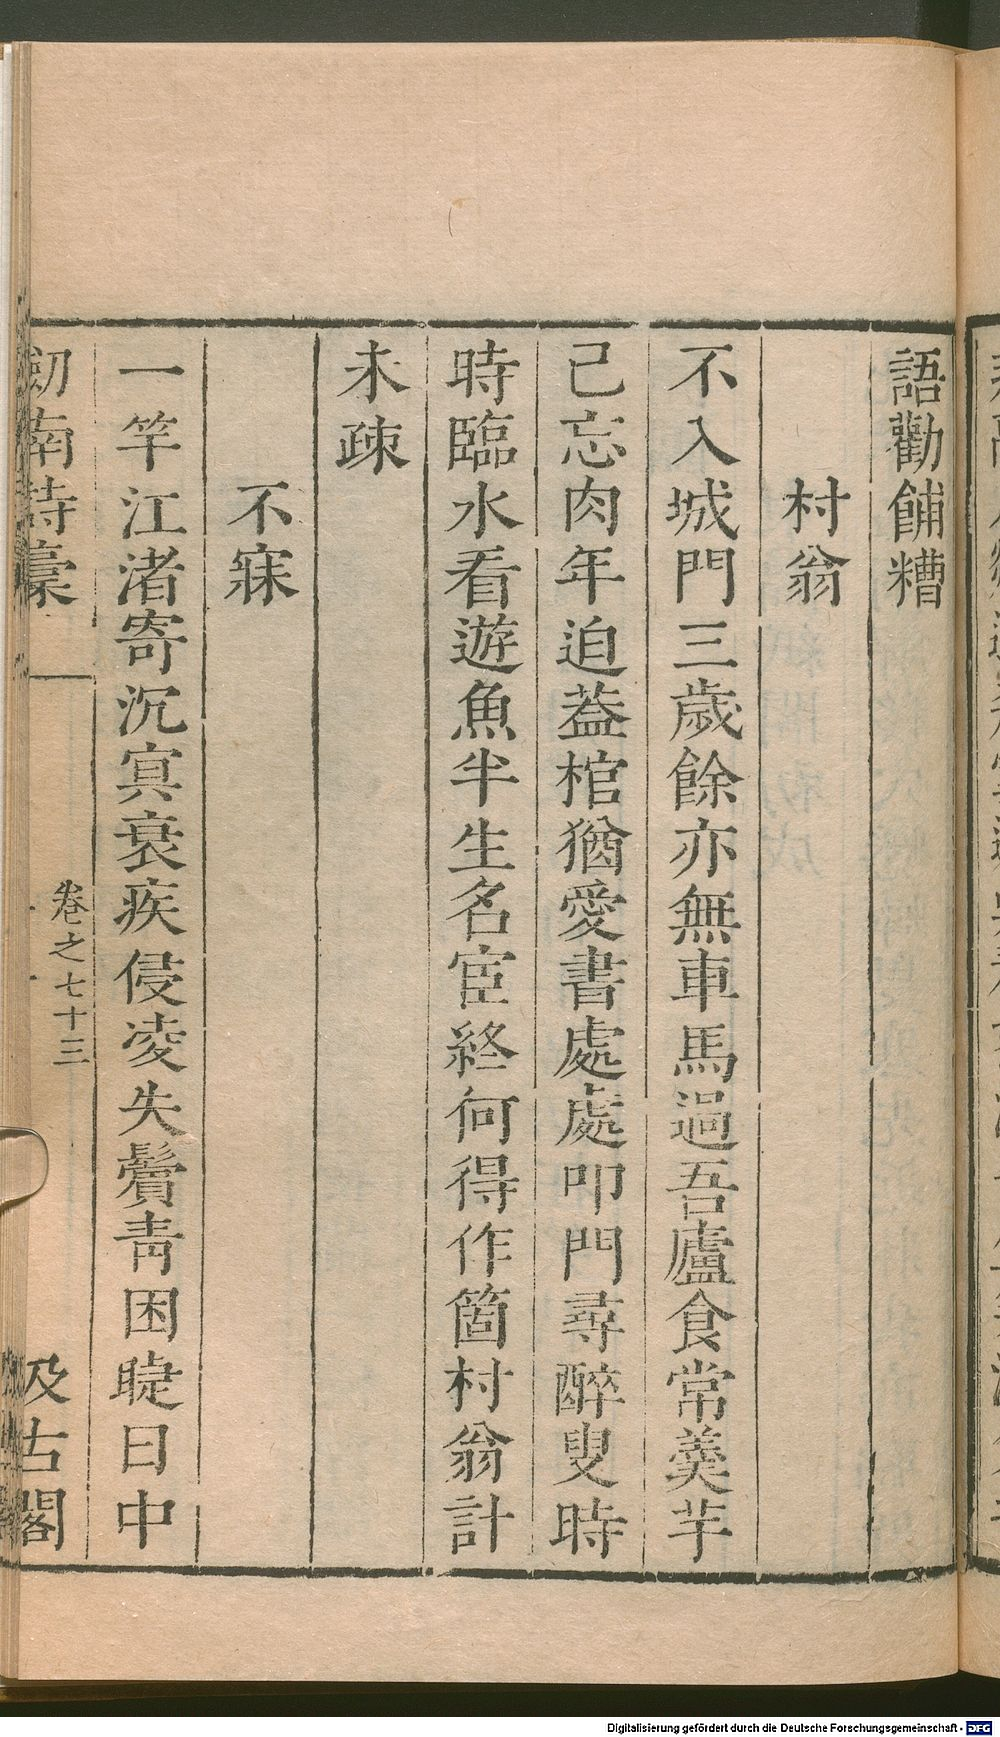 語勸餔糟
村翁
不入城門三歲餘亦無車馬過吾廬食常羹芋
己忘肉年迫葢棺猶愛書處處叩門尋醉叟時
時臨水看遊魚半生名宦終何得作箇村翁計
未疎
不寐
一竿江渚寄沉冥衰疾侵凌失鬢靑困睫日中
劒南詩藁
卷之七十三
汲古閣
Digitalisierung gefördert durch die Deutsche Forschungsgemeinschaft - DFG